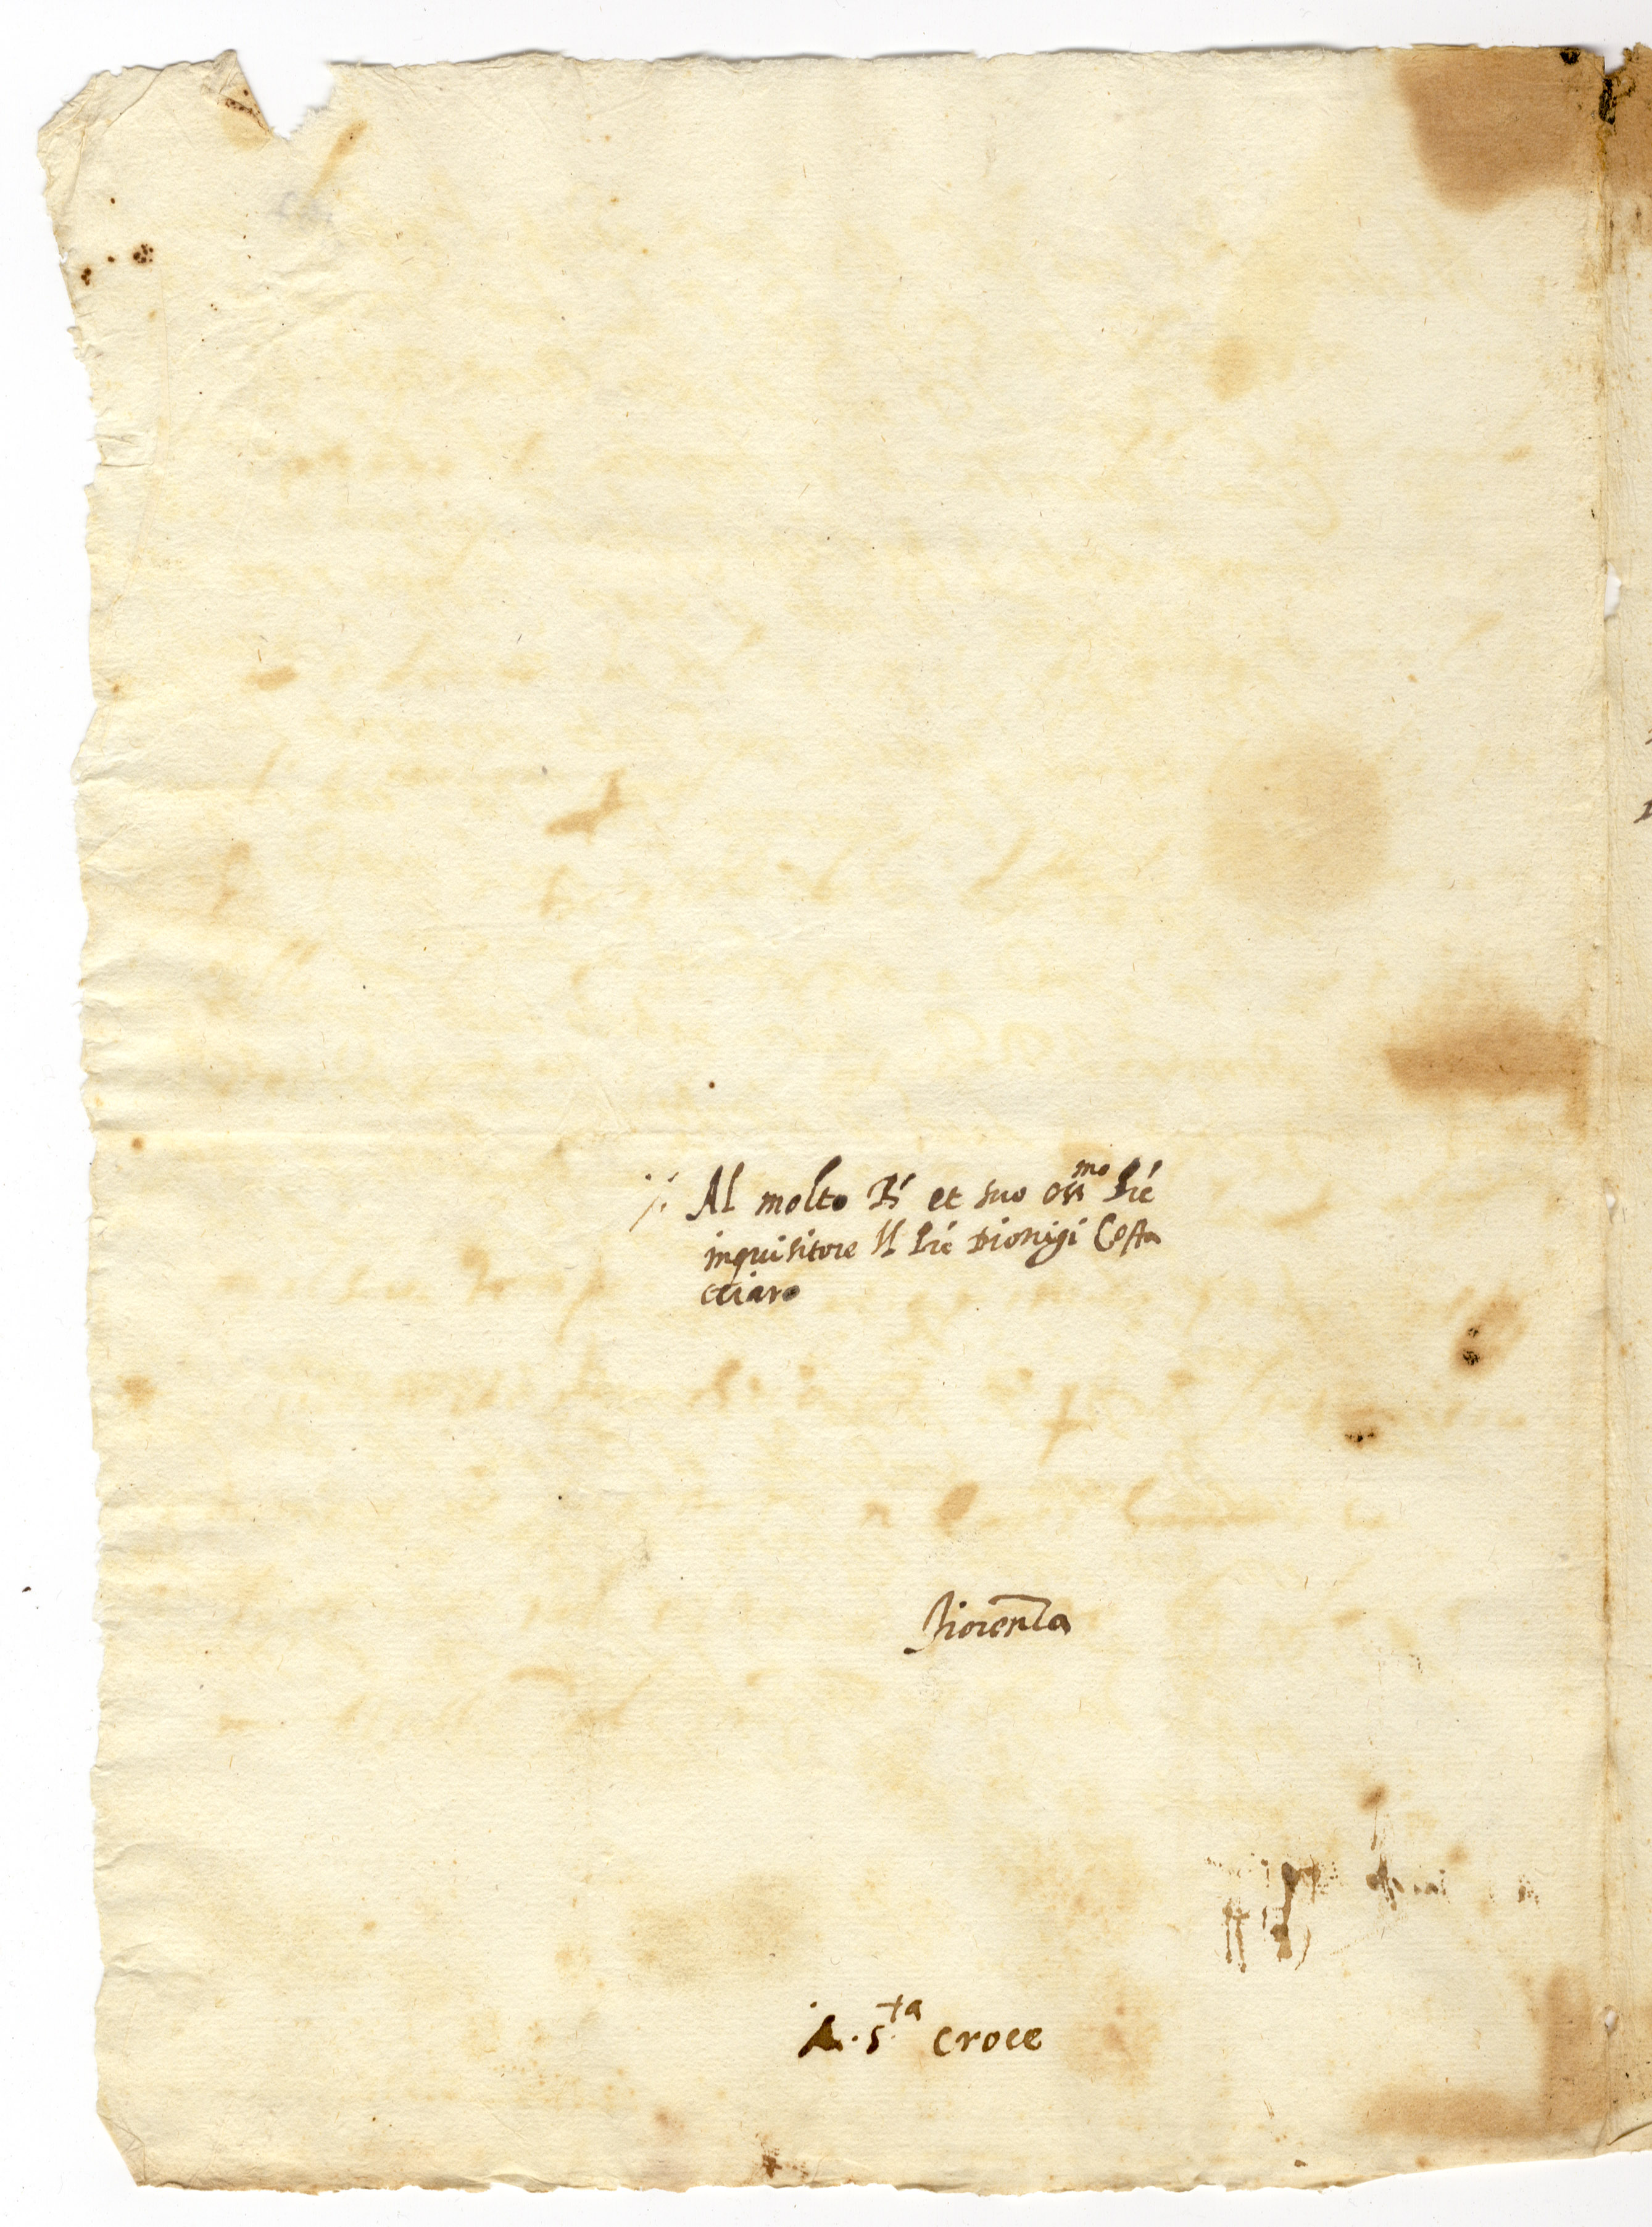 Al molto R.^do et suo oss^mo Pre
inquisitore Il Pre Dionigi Costa
cciaro
Fiorenza
A. S^ta croce